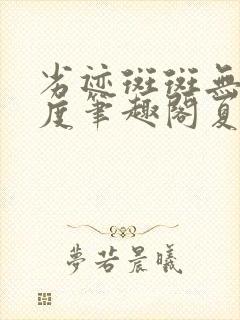 劣迹斑斑无
度笔趣阁夏
夢若晨曦